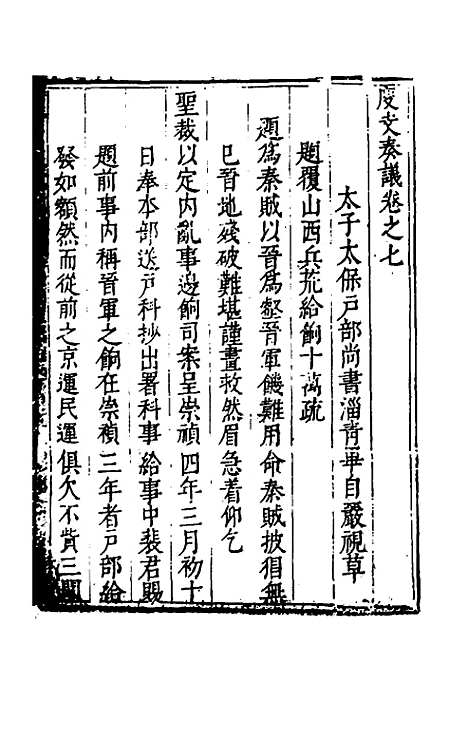 度支奏議卷之七
太子太保戶部尚書淄青畢自嚴視草
題覆山西兵荒給餉十萬疏
題爲秦賊以晉爲壑晉軍饑難用命秦賊披猖無
已晉地殘破難堪謹畫救然眉急着仰乞
聖裁以定內亂事邊餉司案呈崇禎四年三月初十
日奉本部送戶科抄出署科事給事中裴君賜
題前事內稱晉軍之餉在崇禎三年者戶部給
發如額然而從前之京運民運俱欠不貲三關